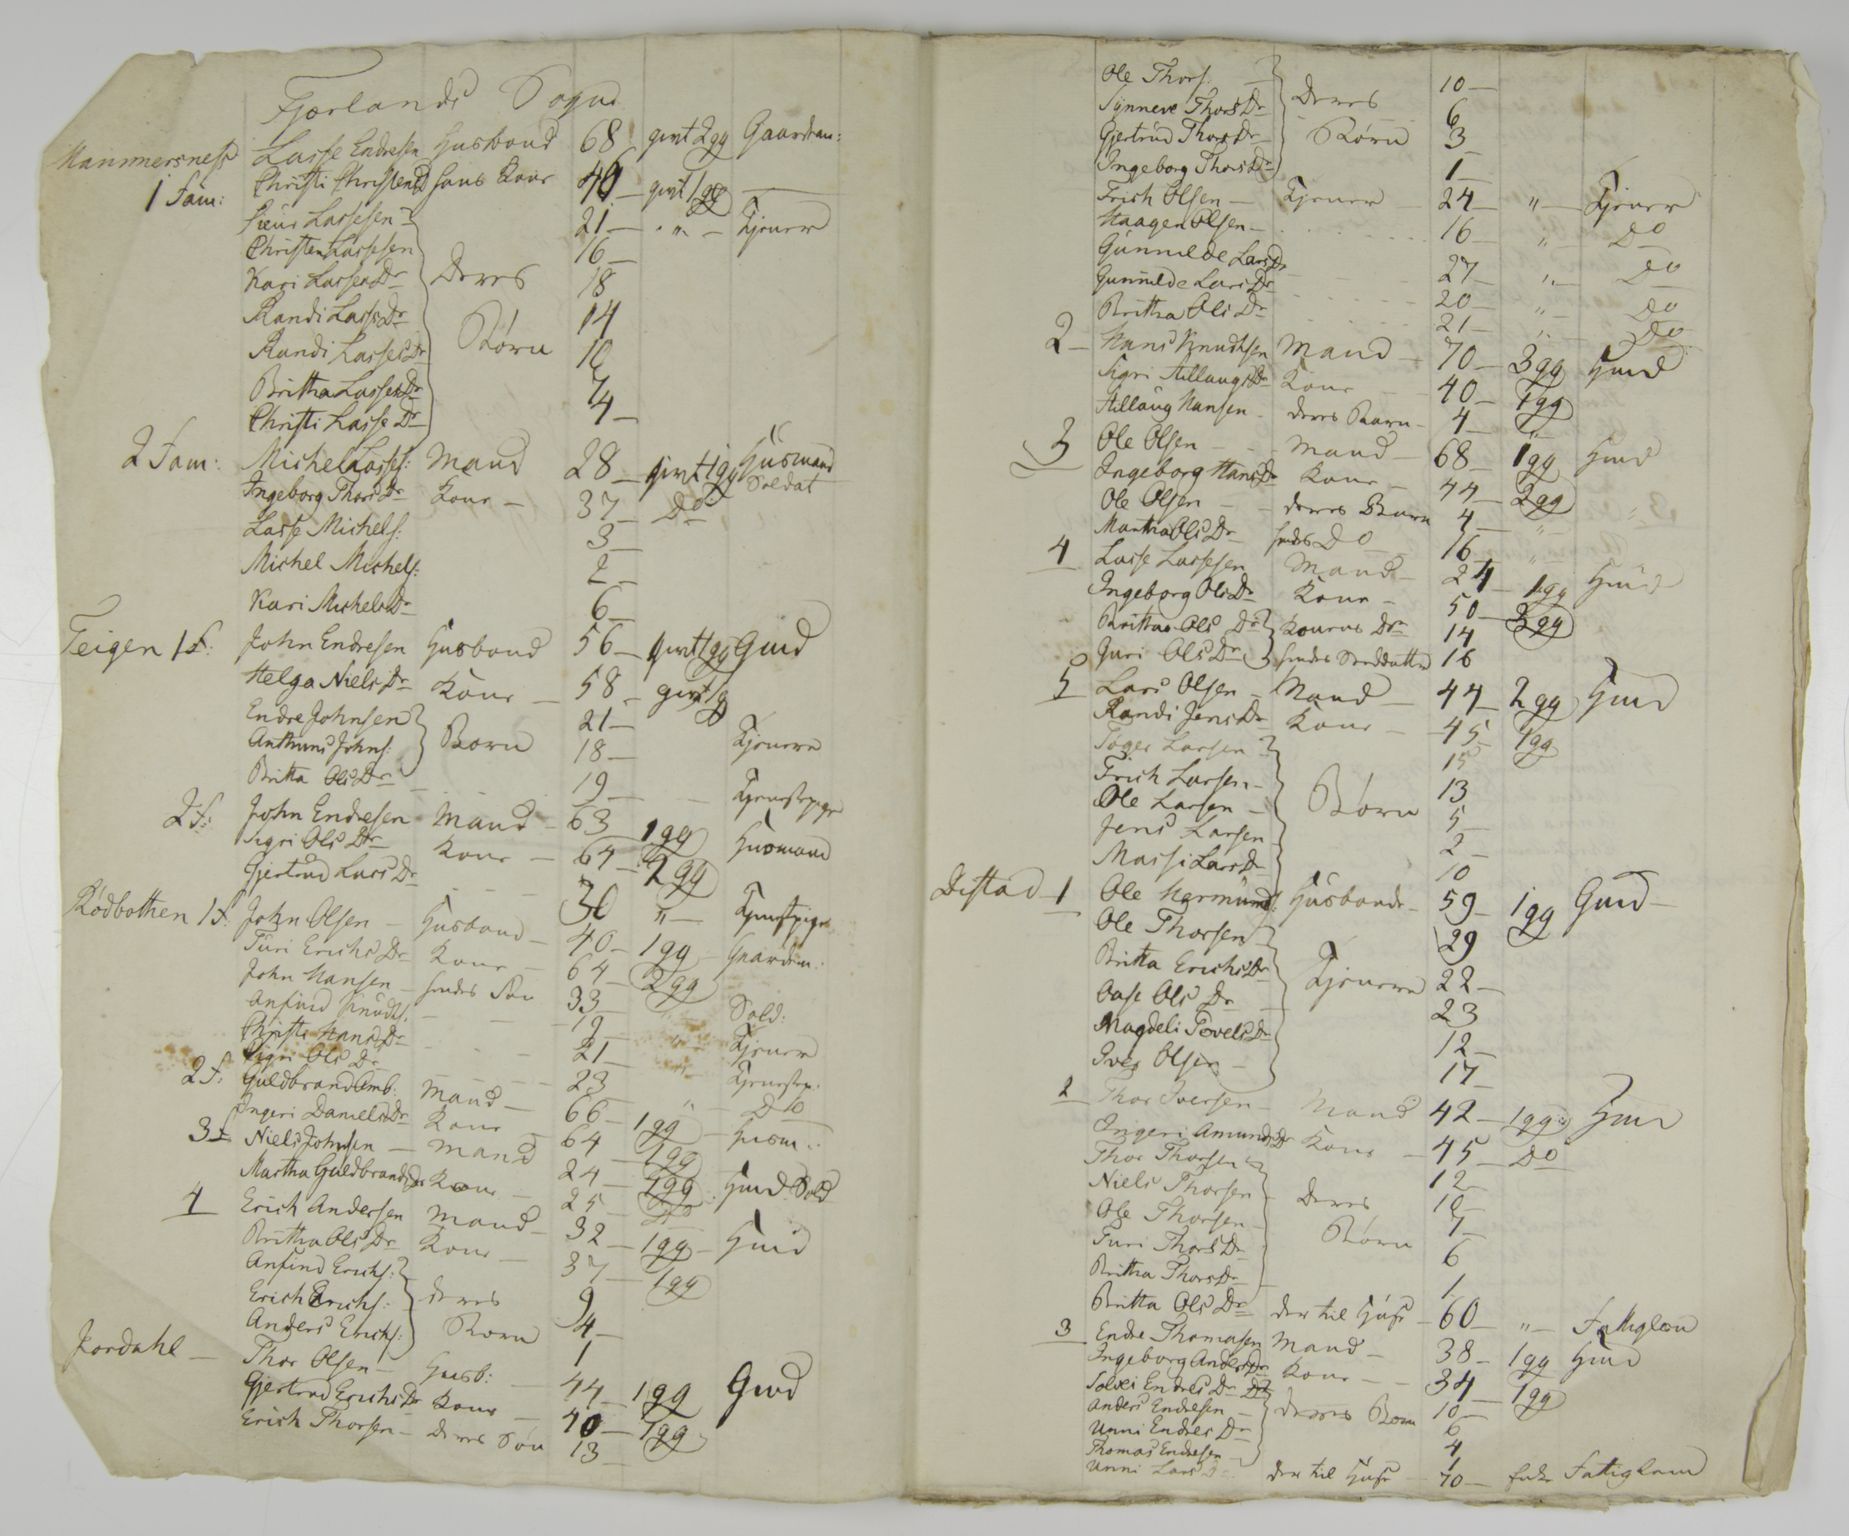 Fjærlands Sogn
Mannmersness Lasse Endresen Husbond 68 givt 2gg Gaardm:
1 Fam: Christi Christend hans Kone 46 givt 1gg
Lassesen 21 — " — Tjener
Christen Lassesen 16 —
Kari LassesDr Deres 18
Randi LassDr 14
Randi LassesDr Børn 10
Britha LassesDr 7
Christi LasseDr 4 —
2 Fam: Michel Lasses: Mand 28 — givt 1gg Husmand Soldat
Ingeborg ThorsDr Kone — 37 — Do
Lasse Michels: 3 —
Michel Michels: 2 —
Kari MichelsDr 6 —
Teigen 1f: John Endresen Husbond 56 — givt 1gg Gmd
Helga NielsDr Kone — 58 — givt 1g
Endre Johnsen 21 —
Anthuns Johns: Børn 18 — Tjenere
Britta OlsDr 19 — Tjenestepige
2f: John Endresen Mand — 63 1gg Husmand
Sigri OlsDtr Kone — 64 — 2gg
Gjertrud LarsDr 30 " — Tjenestpige
Rødbotten 1f. John Olsen — Husbond — 40 — 1gg Gaardm:
Turi ErichsDr Kone — 64 — 2gg
John Hansen — hendes Søn 33 Sold:
Anfind Knuds: 19 Tjener
Christi HansDr 21
Sigri Ols Dr 23 Tjenestp:
2f: Guldbrand Amb: Mand — 66 — 1gg — Husm:
Ingeri DanielsDr Kone 64 — 1gg
3f Niels Johnsen — Mand 24 — 1gg Hmd. Sold
Martha GuldbrandsDr Kone — 25 —
4 Erich Andersen Mand — 32 — 1gg — Hmd
Britha OlsDr Kone — 37 — 1gg
Anfind Erichs: 9
Erich Erichs: deres 4 —
Anders Erichs: Børn 1
Jordahl — Thor Olsen — Husb: — 44 — 1gg Gmd
Gjertrud ErichsDr Kone — 40 — 1gg
Erich Thorsen — Deres Søn 13 —
Ole Thors: 10 —
Synneve ThorsDr Deres 6
Gjertrud ThorsDr Børn 3
Ingeborg ThorsDr 1
Erich Olsen — Tjener — 24 — " — Tjener
Haagen Olsen — 16 — " — Do
Gunnilde LarsDr 27 — " — Do
Gunnilde LarsDr 20 — " — Do
Britha OlsDr 21 — " — Do
2 — Hans Knudtsen Mand — 70 — 3gg Hmd
Sigri AslaugsDr Kone — 40 — 1gg
Aslaug Hansen — deres Barn — 4 — "
3 Ole Olsen — Mand — 68 — 1gg Hmd
Ingeborg HansDr Kone — 44 — 2gg
Ole Olsen — deres Barn 4 — "
Martha OlsDr hendes Do 16 — "
4 Lasse Lassesen Mand — 24 — 1gg Hmd
Ingeborg OlsDr Kone — 50 — 3gg
Britha Ols Dr Konens Dr 14
Guri OlsDr hendes 16
5 Lars Olsen — Mand — 44 — 2gg Hmd
Randi JensDr Kone — 45 — 1gg
Larsen 15
Erich Larsen — 13
Ole Larsen — Børn 5 —
Jens Larsen 2 —
Massi LarsDr 10
Distad 1 Ole Hermunds: Husbonde — 59 — 1gg Gmd —
Ole Thorsen 29
Britta ErichsDr Tjenere 22 —
Aase Ols Dr 23
Magdeli PovelsDr 12 —
Iver Olsen — 17 —
2 Thor Iversen — Mand 42 — 1gg Hmd
Ingeri AmundsDr Kone — 45 — Do
Thor Thorsen 12 —
Niels Thorsen Deres 10 —
Ole Thorsen — Børn 7 —
Turi ThorsDr 6
Britha ThorsDr 1
Britta OlsDr der til Huse — 60 — " — Fattiglem
3 Endre Thomasen Mand — 38 — 1gg Hmd
Ingeborg AndersDr Kone — 34 — 1gg
Solvei EndresDr 10 —
Anders Endresen — deres Børn 6
Unni Endres Dr 4
Thomas Endresen — 1
Unni Lars D der til Huse 70 — Enke Fattiglem